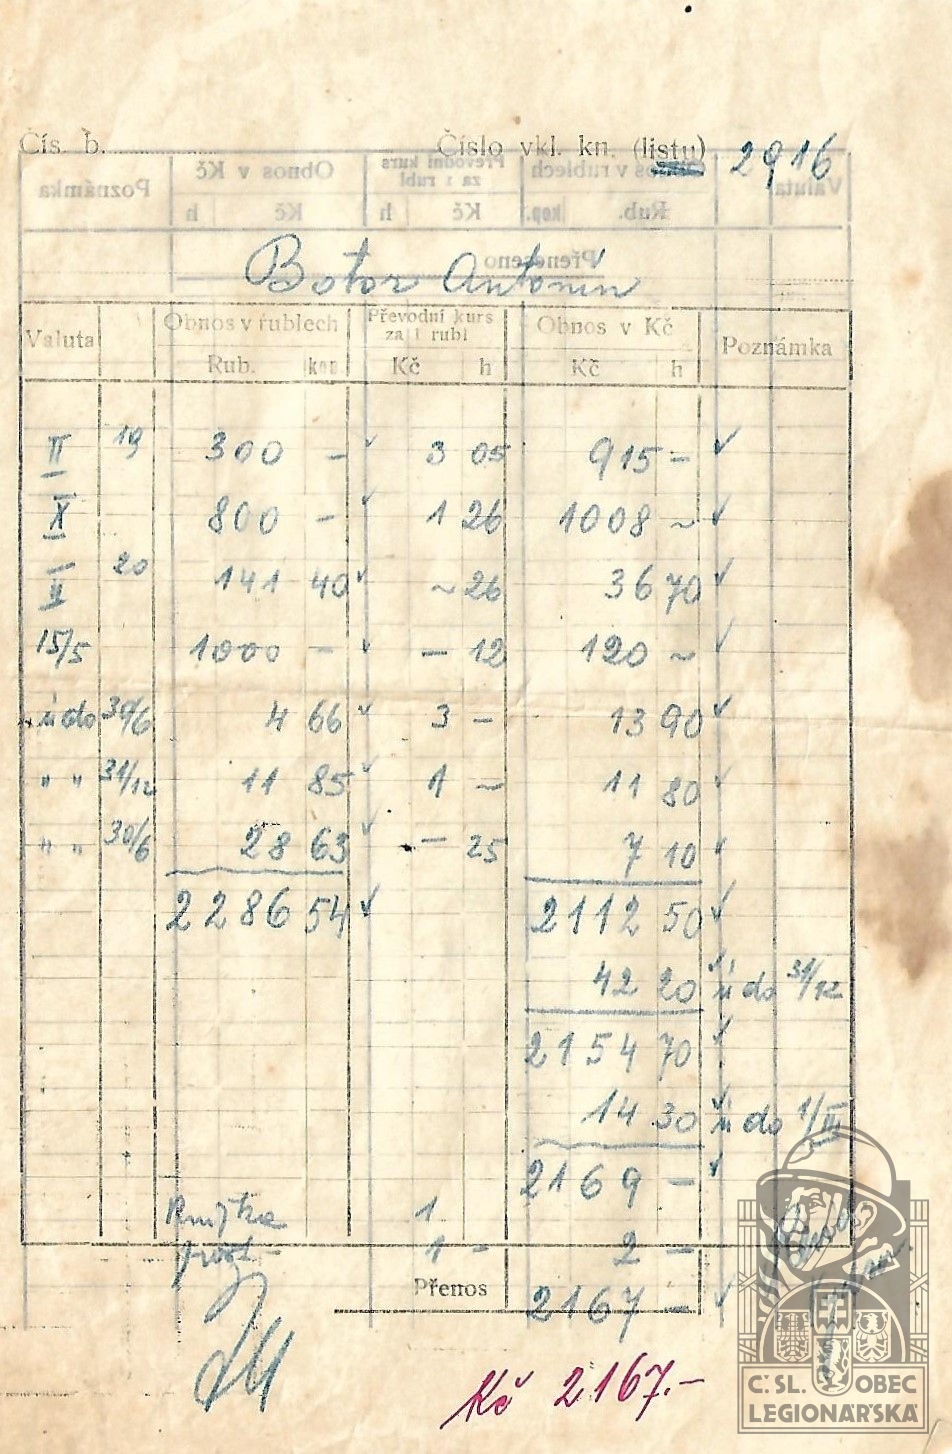 Čís. b. Číslo vkl. kn. (listu) 2916
Poznámka Obnos v Kč Převodní kurs za 1 rubl Obnos v rublech Valuta
h Kč h Kč kop. Rub.
Přeneseno
Botor Antonín
Valuta Obnos v rublech Převodní kurs za 1 rubl Obnos v Kč Poznámka
Rub. kop. Kč h Kč h
II 19 300 — 3 05 915 —
X 800 — 1 26 1008 ~
II 20 141 40 ~ 26 36 70
15/5 1000 — — 12 120 ~
ú do 30/6 4 66 3 — 13 90
" " 31/12 11 85 1 ~ 11 80
" " 30/6 28 63 — 25 7 10
2286 54 2112 50
42 20 ú do 31/12
2154 70
14 30 ú do 1/III
2169 —
Knížka 1
1 — 2 —
Přenos 2167 —
Kč 2167.—
Č.SL. OBEC
LEGIONÁŘSKÁ